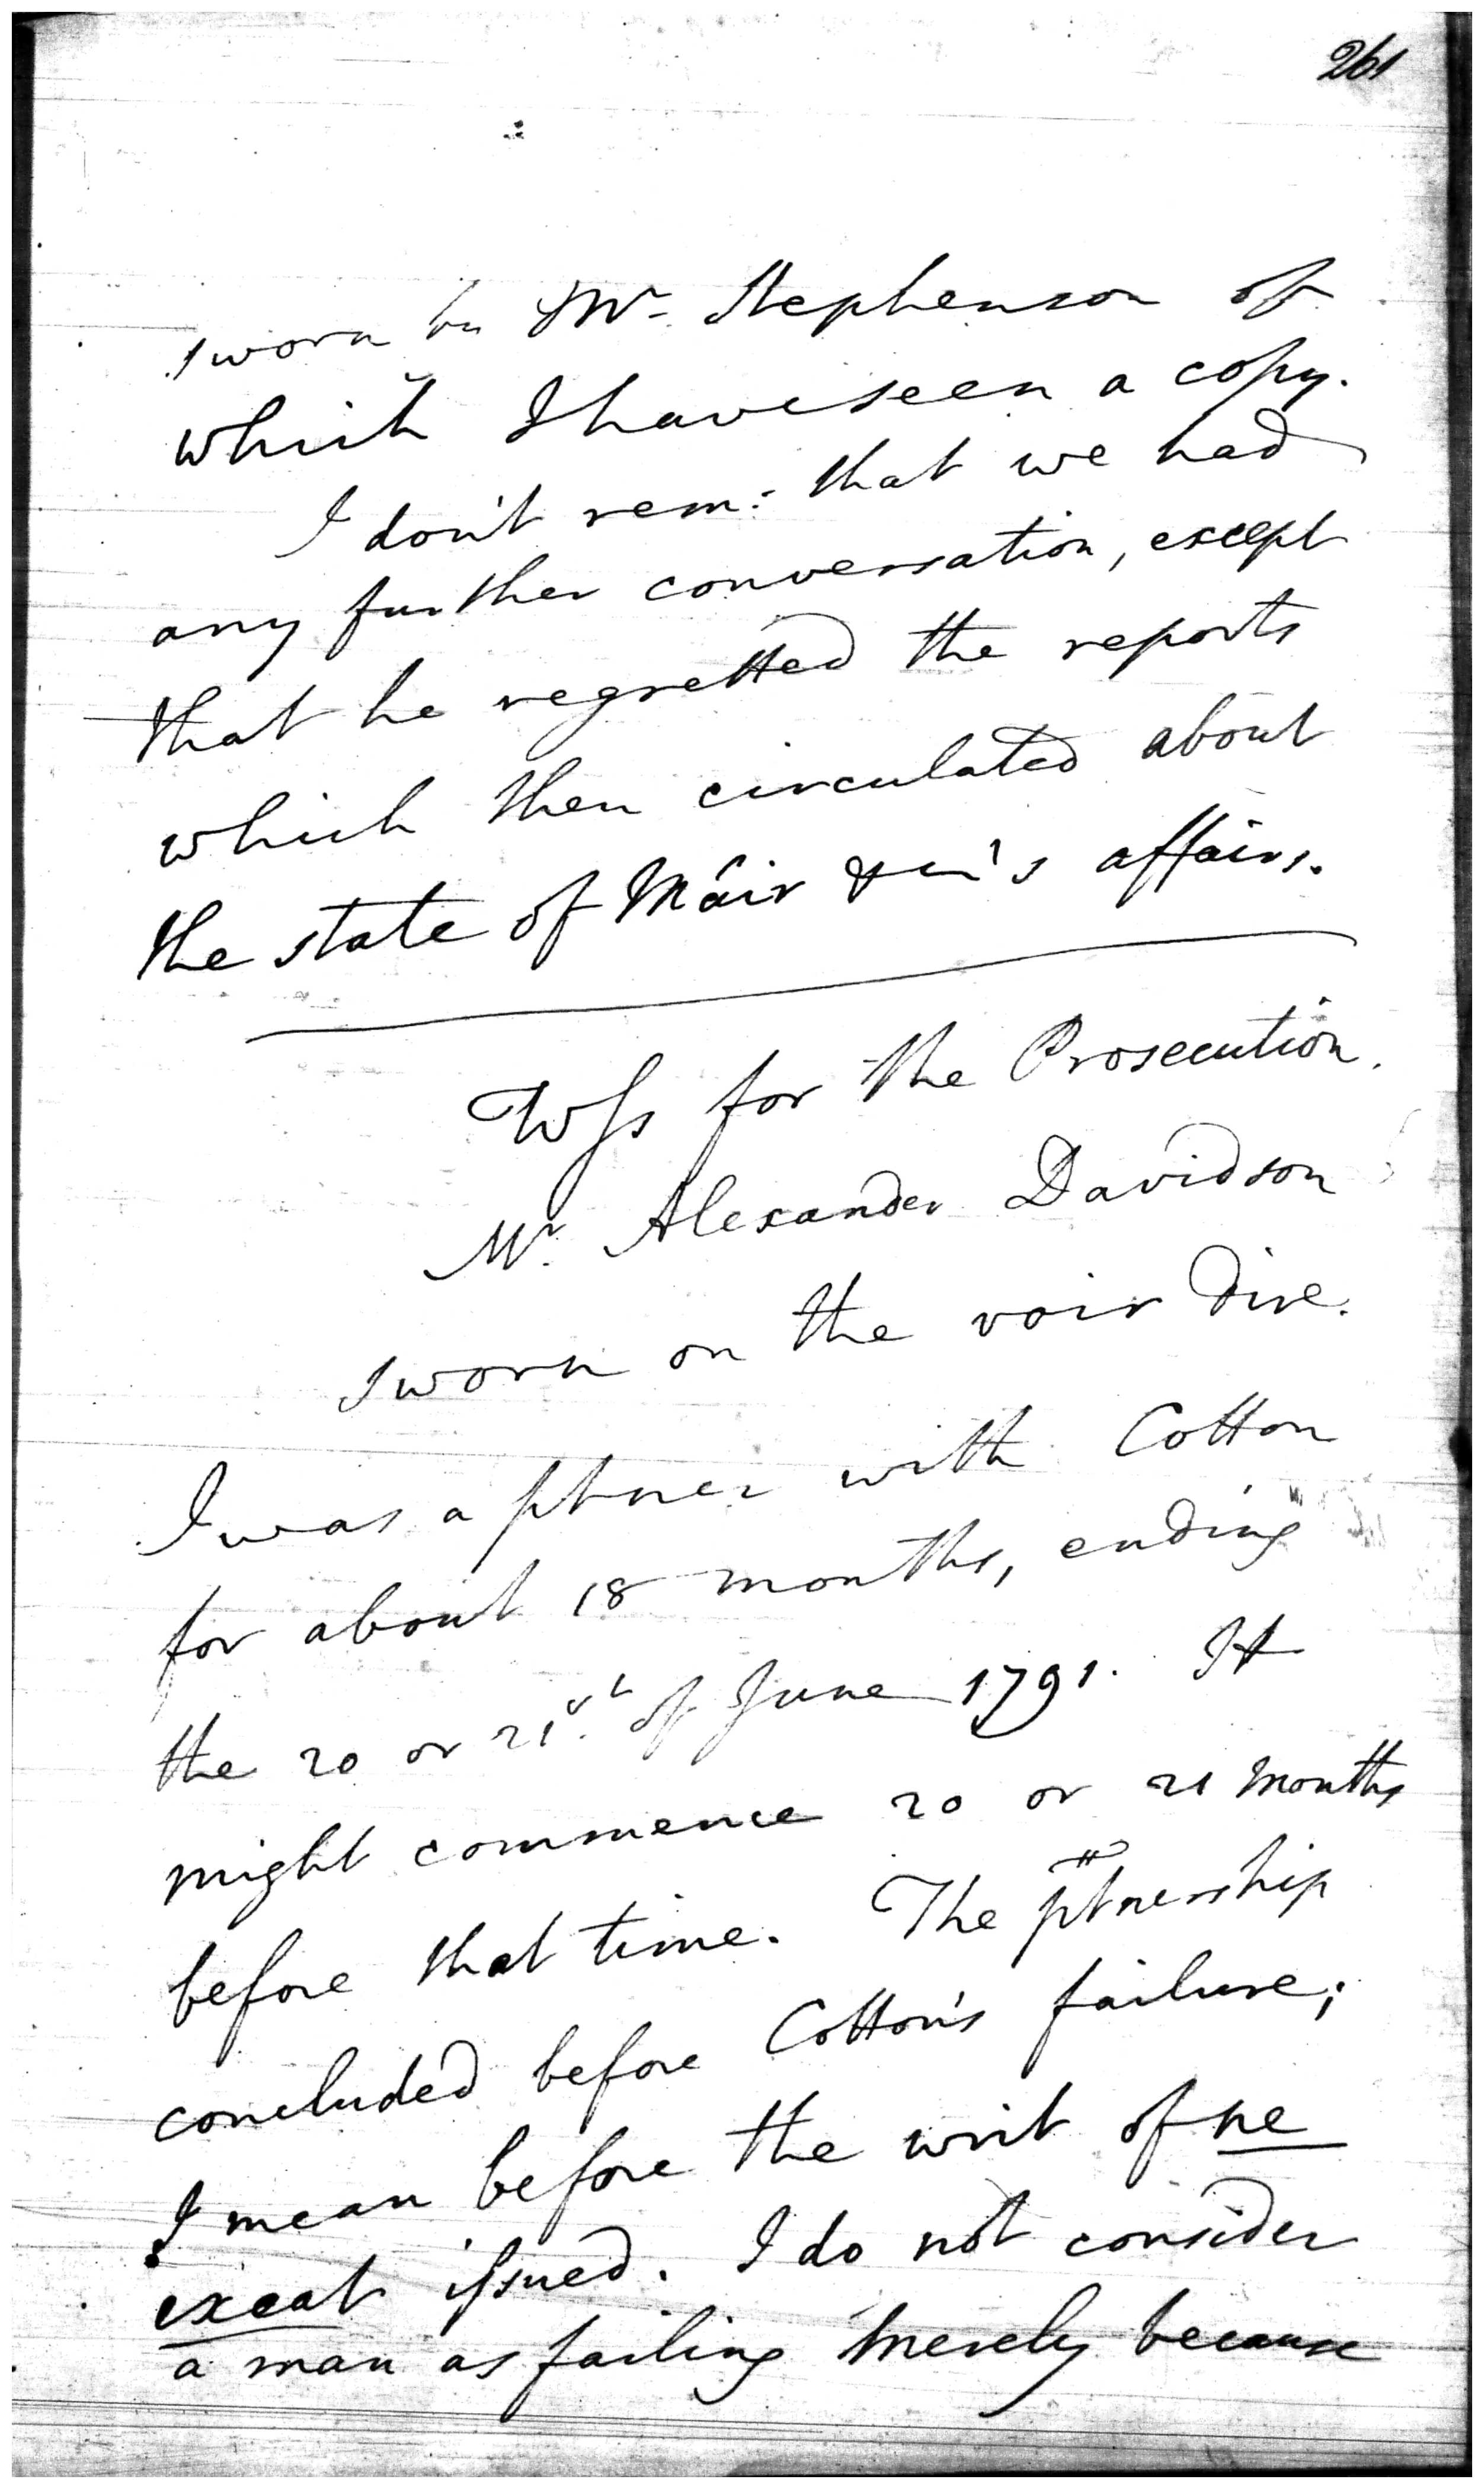 261
sworn by Mr. Stephenson of
which I have seen a copy.
I don't rem: that we had
any further conversation, except
that he regretted the reports
which then circulated about
the state of Mair & Co's affairs.
Wss for the Prosecution.
Mr. Alexander Davidson
sworn on the voir dire.
I was a ptner with Cotton
for about 18 months, ending
the 20 or 21st. of June 1791. It
might commence 20 or 21 months
before that time. The ptnership
concluded before Cotton's failure;
I mean before the writ of ne
exeat issued. I do not consider
a man as failing merely because